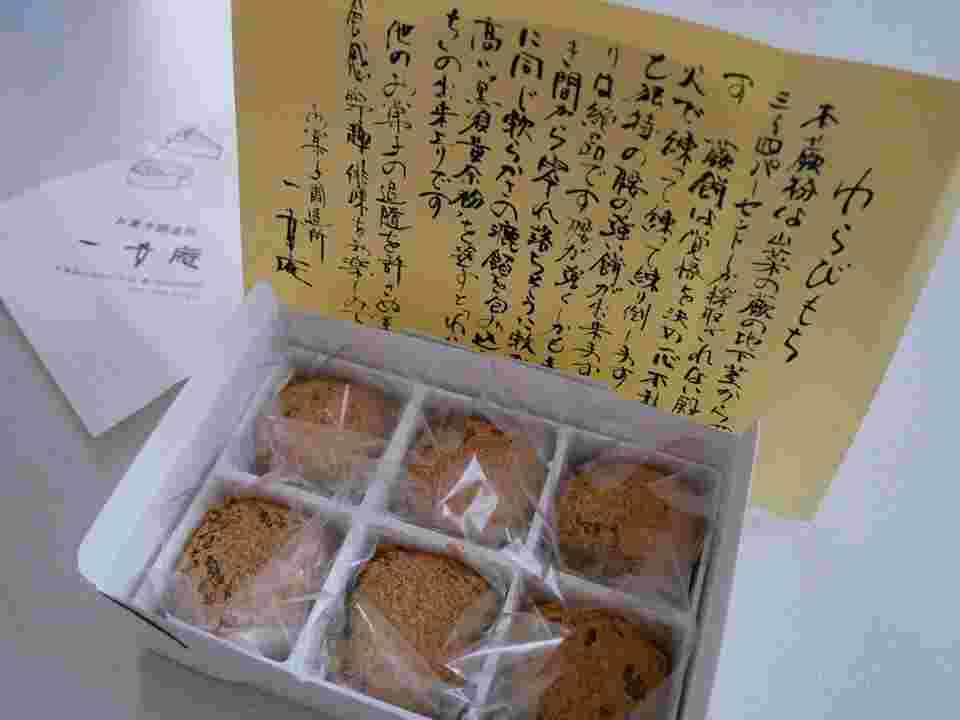 わらびもち
本蕨粉は山菜の蕨の地下茎から
三〜四パーセントしか採取されない
す
蕨餅は覚悟を決め 心不乱
火で練って練って練り倒します
独特の腰の強い餅が出来ます
りは絶品です 腰が強くしかも
き間から零れ落ちそうに軟か
に同じ軟らかさの漉餡を包み込
高い黒須黄な粉を塗すとわ
ちの出来上りです
他のお菓子の追随を許さぬ
食感 俳味をお楽しみ
お菓子調進所
一幸庵
お菓子調進所
一幸庵